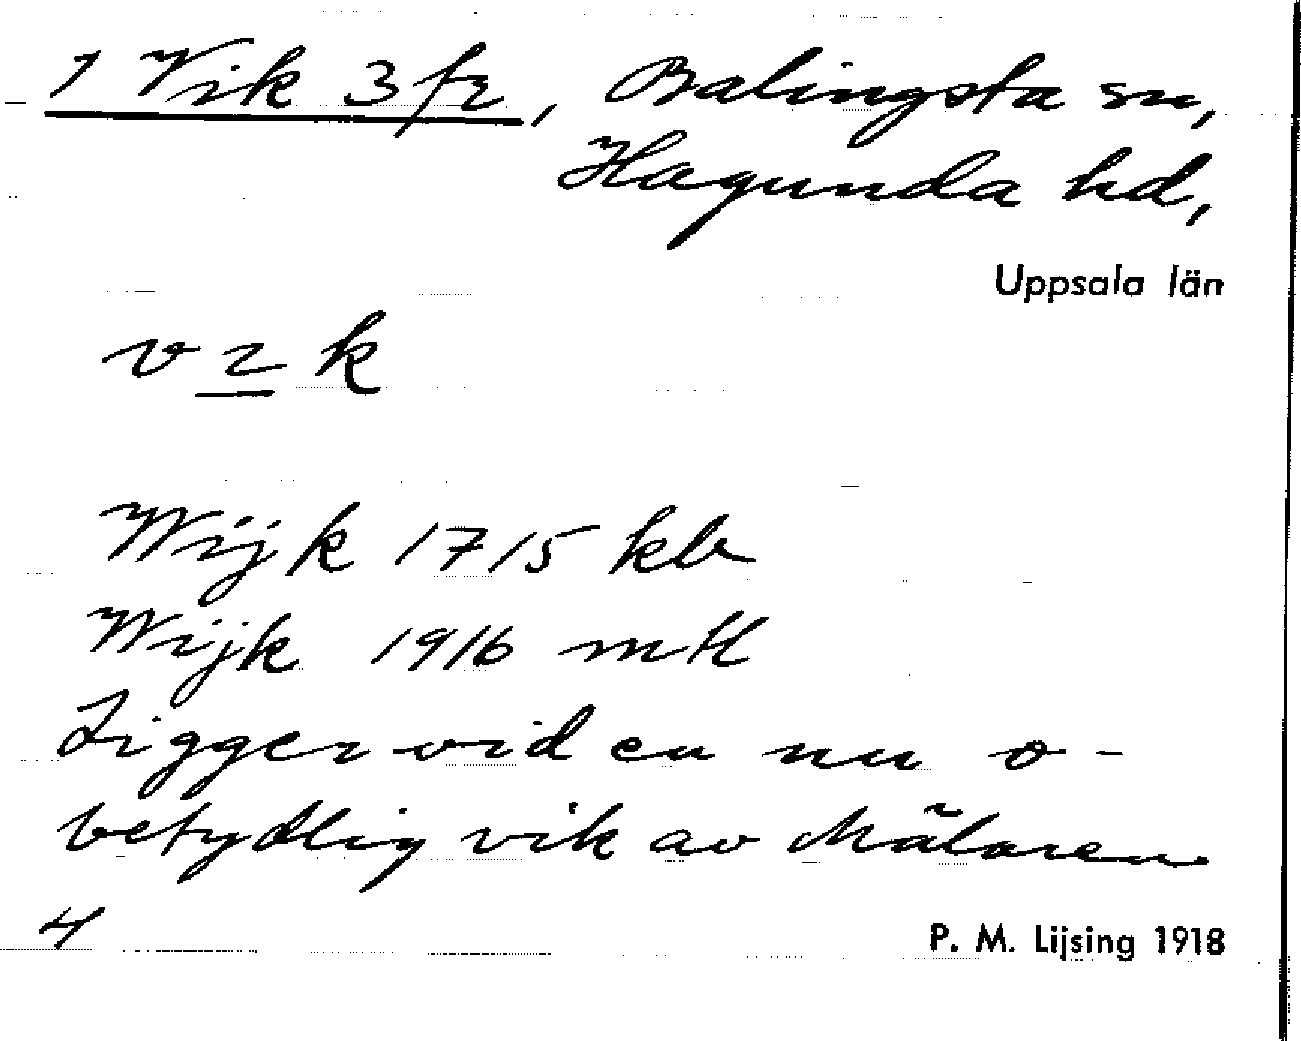 1 Vik 3 fr, Balingsta sn,
Hagunda hd,
Uppsala län
v ı k
Wijk 1715 kb
Wijk 1916 mtl
Ligger vid en nu o-
betydlig vik av Mälaren
4
P. M. Lijsing 1918